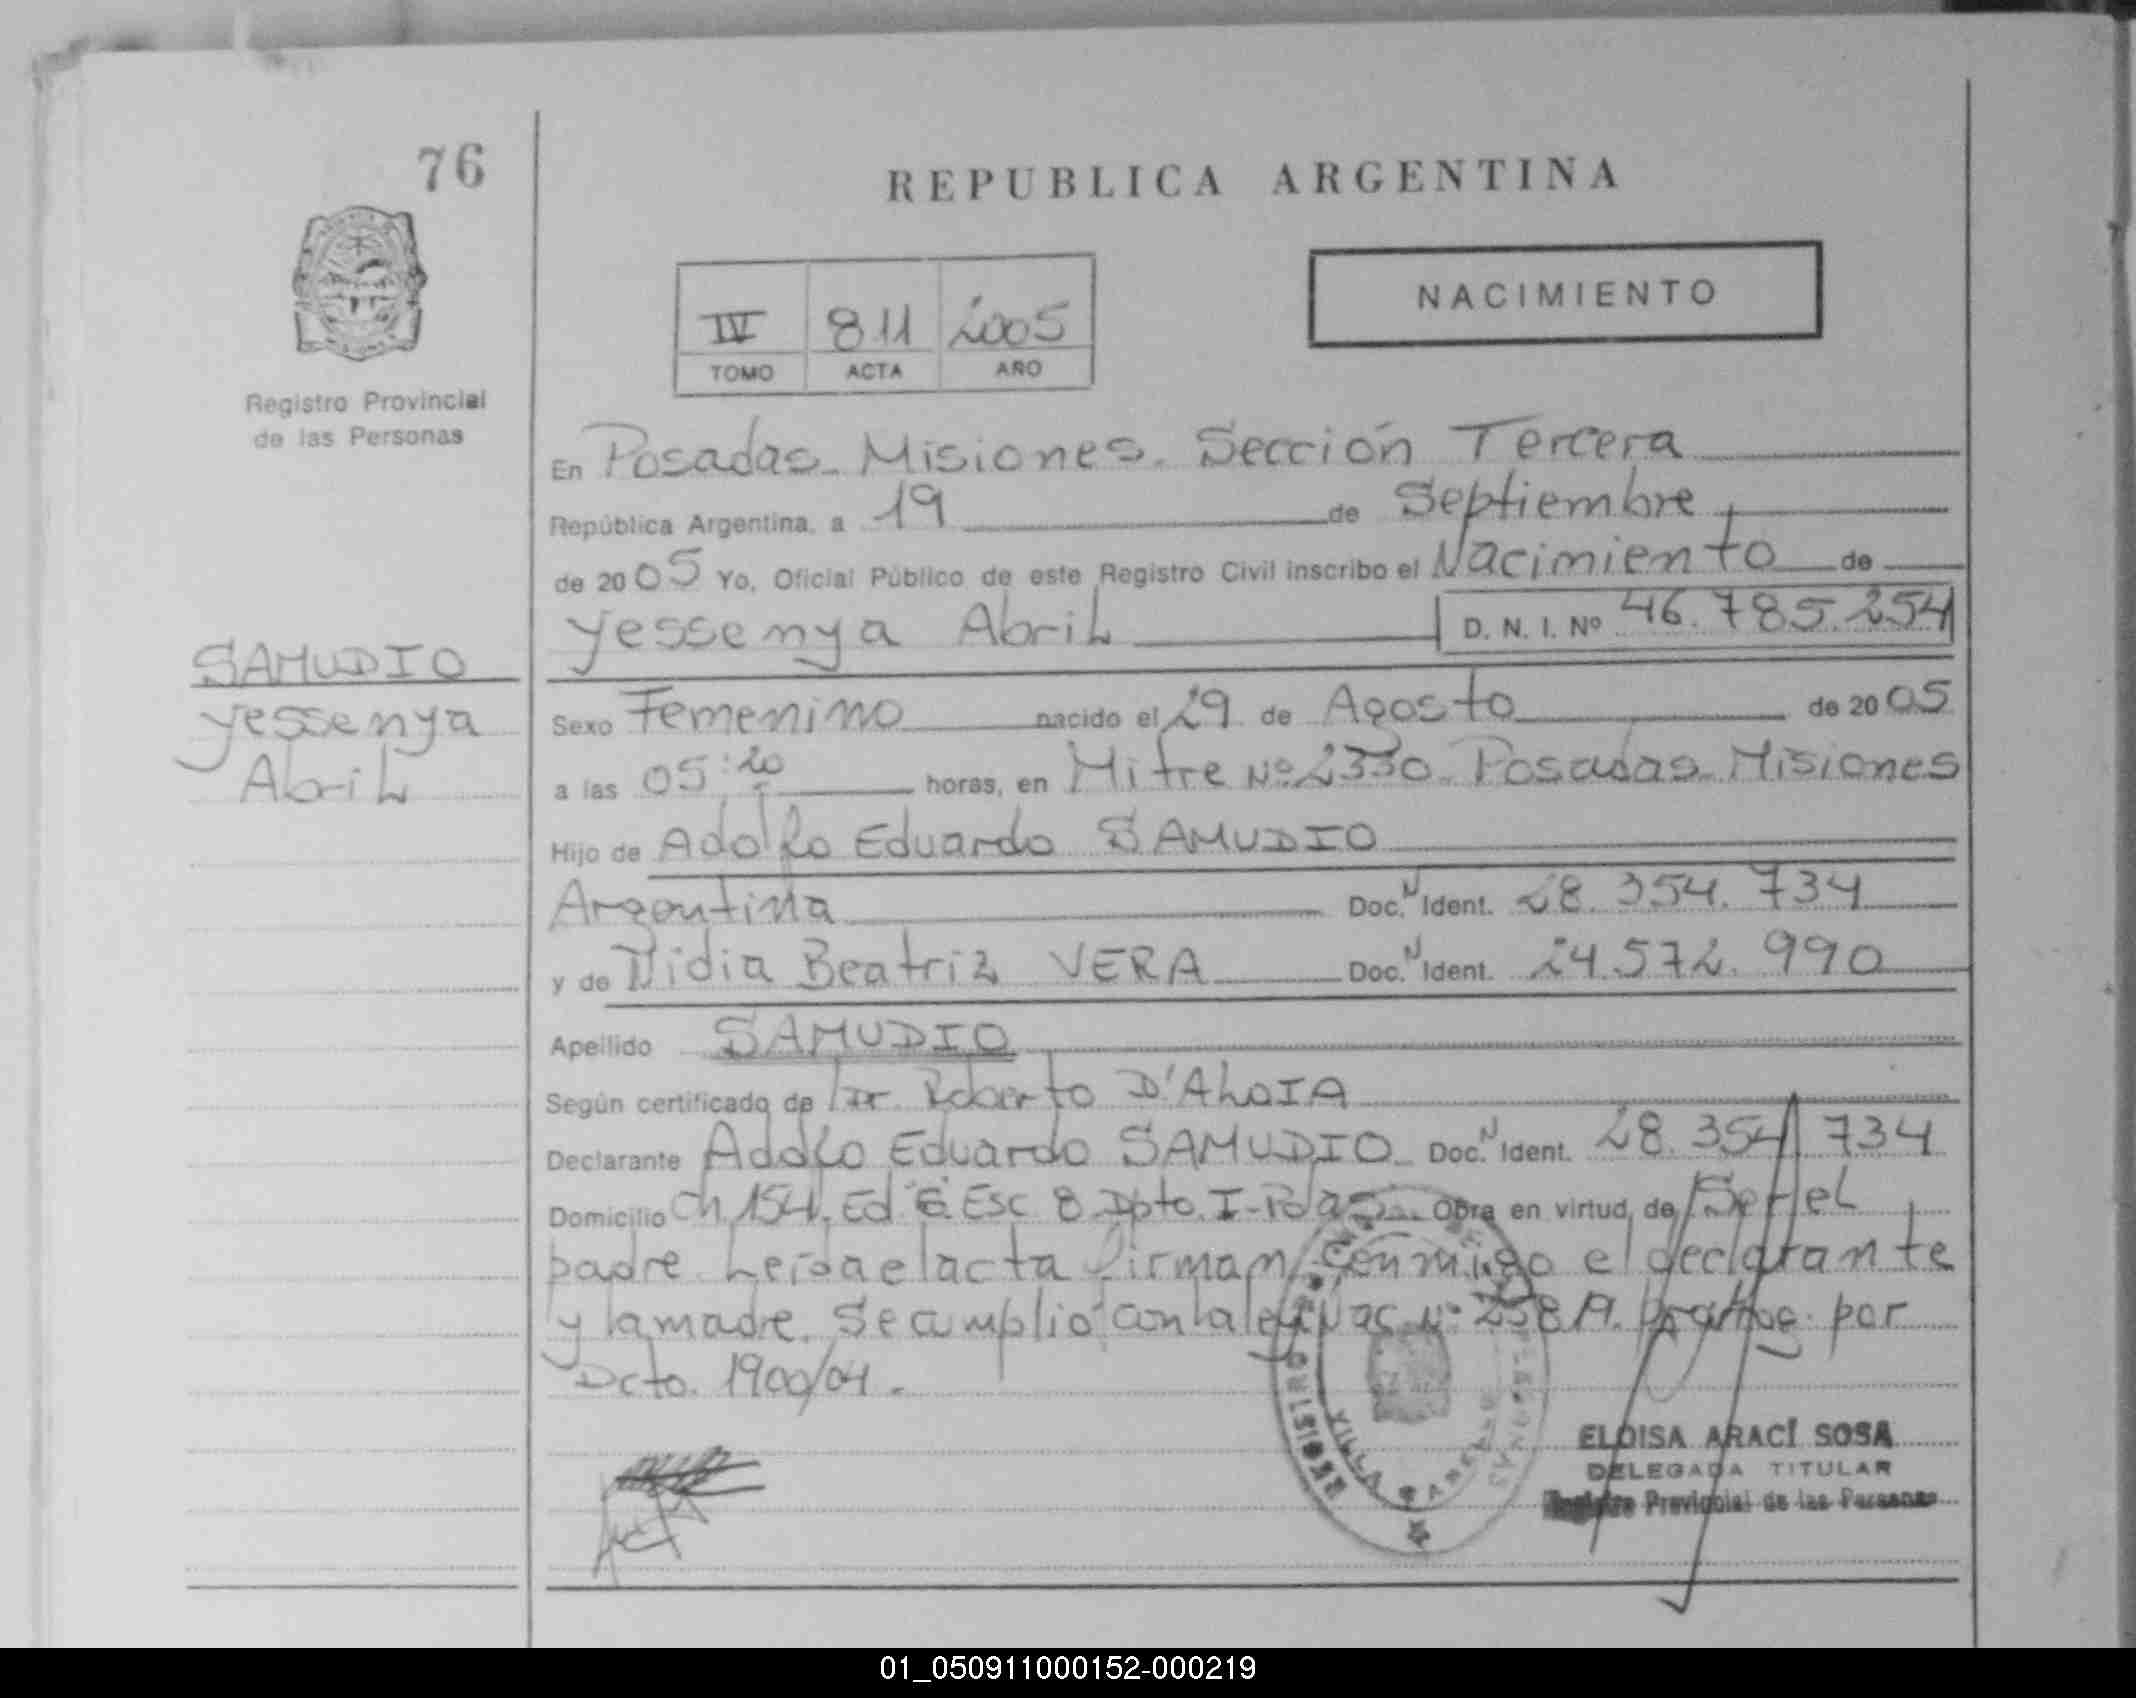 76
REPUBLICA ARGENTINA
IV 811 2005
TOMO ACTA AÑO
NACIMIENTO
Registro Provincial
de las Personas
En Posadas Misiones. Sección Tercera
República Argentina, a 19 de Septiembre
de 2005 Yo, Oficial Público de este Registro Civil inscribo el Nacimiento de
Yessenya Abril D. N. I. Nº 46.785.254
SAMUDIO
Yessenya
Abril
Sexo Femenino nacido el 29 de Agosto de 2005
a las 05:20 horas, en Mitre Nº 2330 Posadas Misiones
Hijo de Adolfo Eduardo SAMUDIO
Argentina Doc. N Ident. 28.354.734
y de Nidia Beatriz VERA Doc. N Ident. 24.572.990
Apellido SAMUDIO
Según certificado de Dr. Roberto D'ALOIA
Declarante Adolfo Eduardo SAMUDIO Doc. N Ident. 28.354.734
Domicilio Ch. 154. Ed 6 Esc 8 Dpto. I-Pdas. Obra en virtud de Ser el
padre Leída el acta firman conmigo el declarante
y la madre. Se cumplió con la ley Nac Nº por
Dcto. 1900/04.
REGISTRO
VILLA
ELOISA ARACÍ SOSA
DELEGADA TITULAR
Registro Provincial de las Personas
01_050911000152-000219